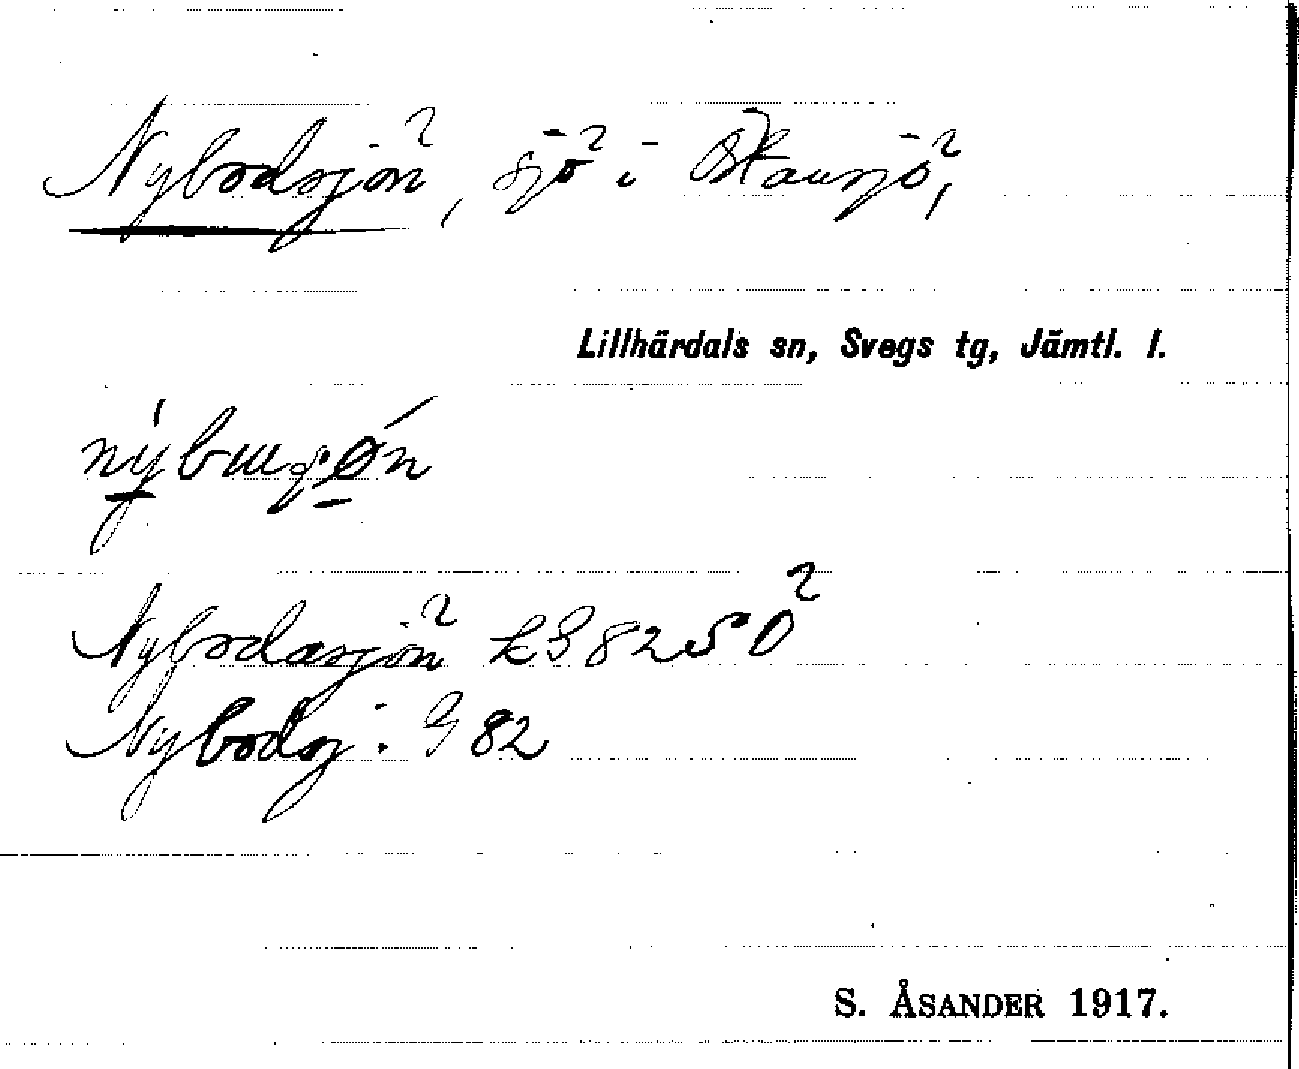 Nybodsjön², sjö² i Skansjö²,
Lillhärdals sn, Svegs tg, Jämtl. l.
Nybodasjön² LS 82 SO²
Nybodsj: G 82
S. ÅSANDER 1917.